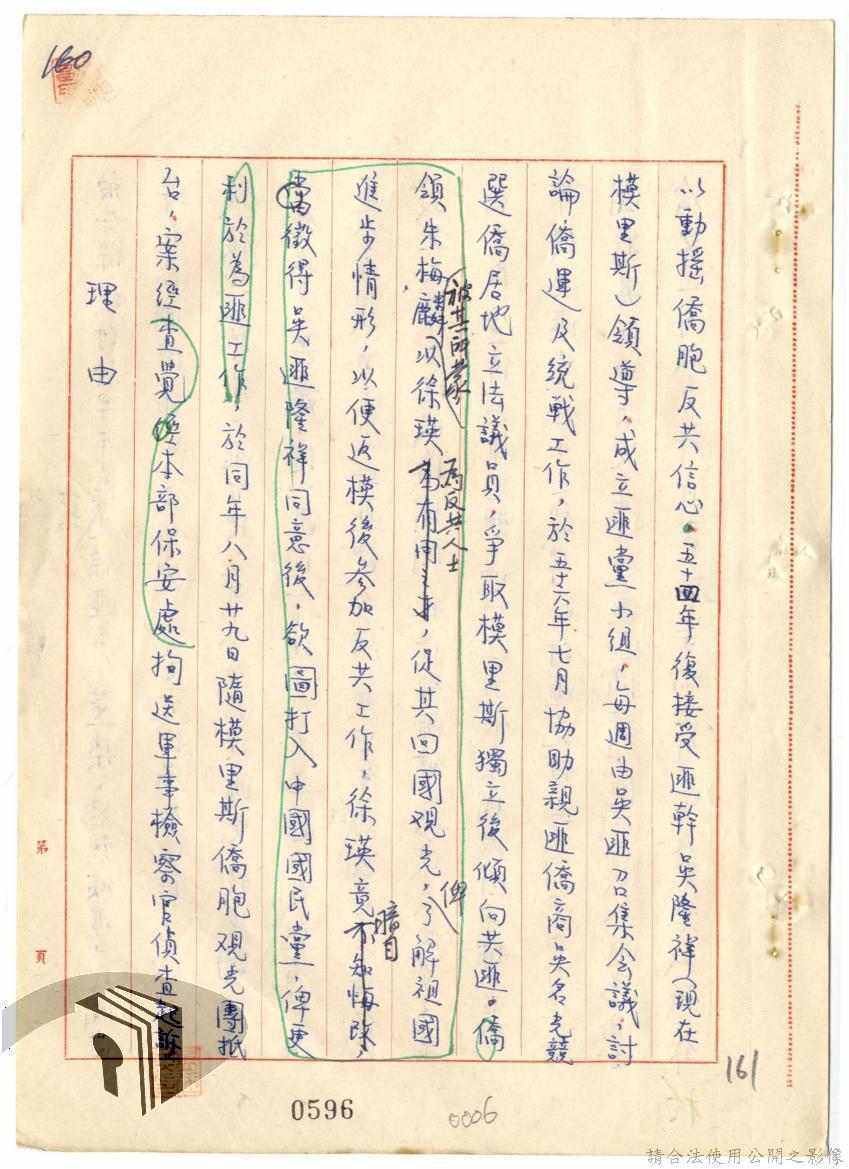 160
以動搖僑胞反共信心。五十四年復接受匪幹吳隆祥(現在
模里斯)領導,成立匪黨小組,每週由吳匪召集會議,討
論僑運及統戰工作,於五十六年七月協助親匪僑商吳名光競
選僑居地立法議員,爭取模里斯獨立後傾向共匪。僑
被其所蒙
為反共人士
領朱梅麟以徐瑛為有用之才,促其回國觀光,俾了解祖國
進步情形,以便返模後參加反共工作,徐瑛竟不知悔改,
當徵得吳匪隆祥同意後,欲圖打入中國國民黨,俾更
利於為匪工作,於同年八月廿九日隨模里斯僑胞觀光團抵
台,案經查覺經本部保安處拘送軍事檢察官偵查起訴
理由
第 頁
161
0596
0006
請合法使用公開之影像